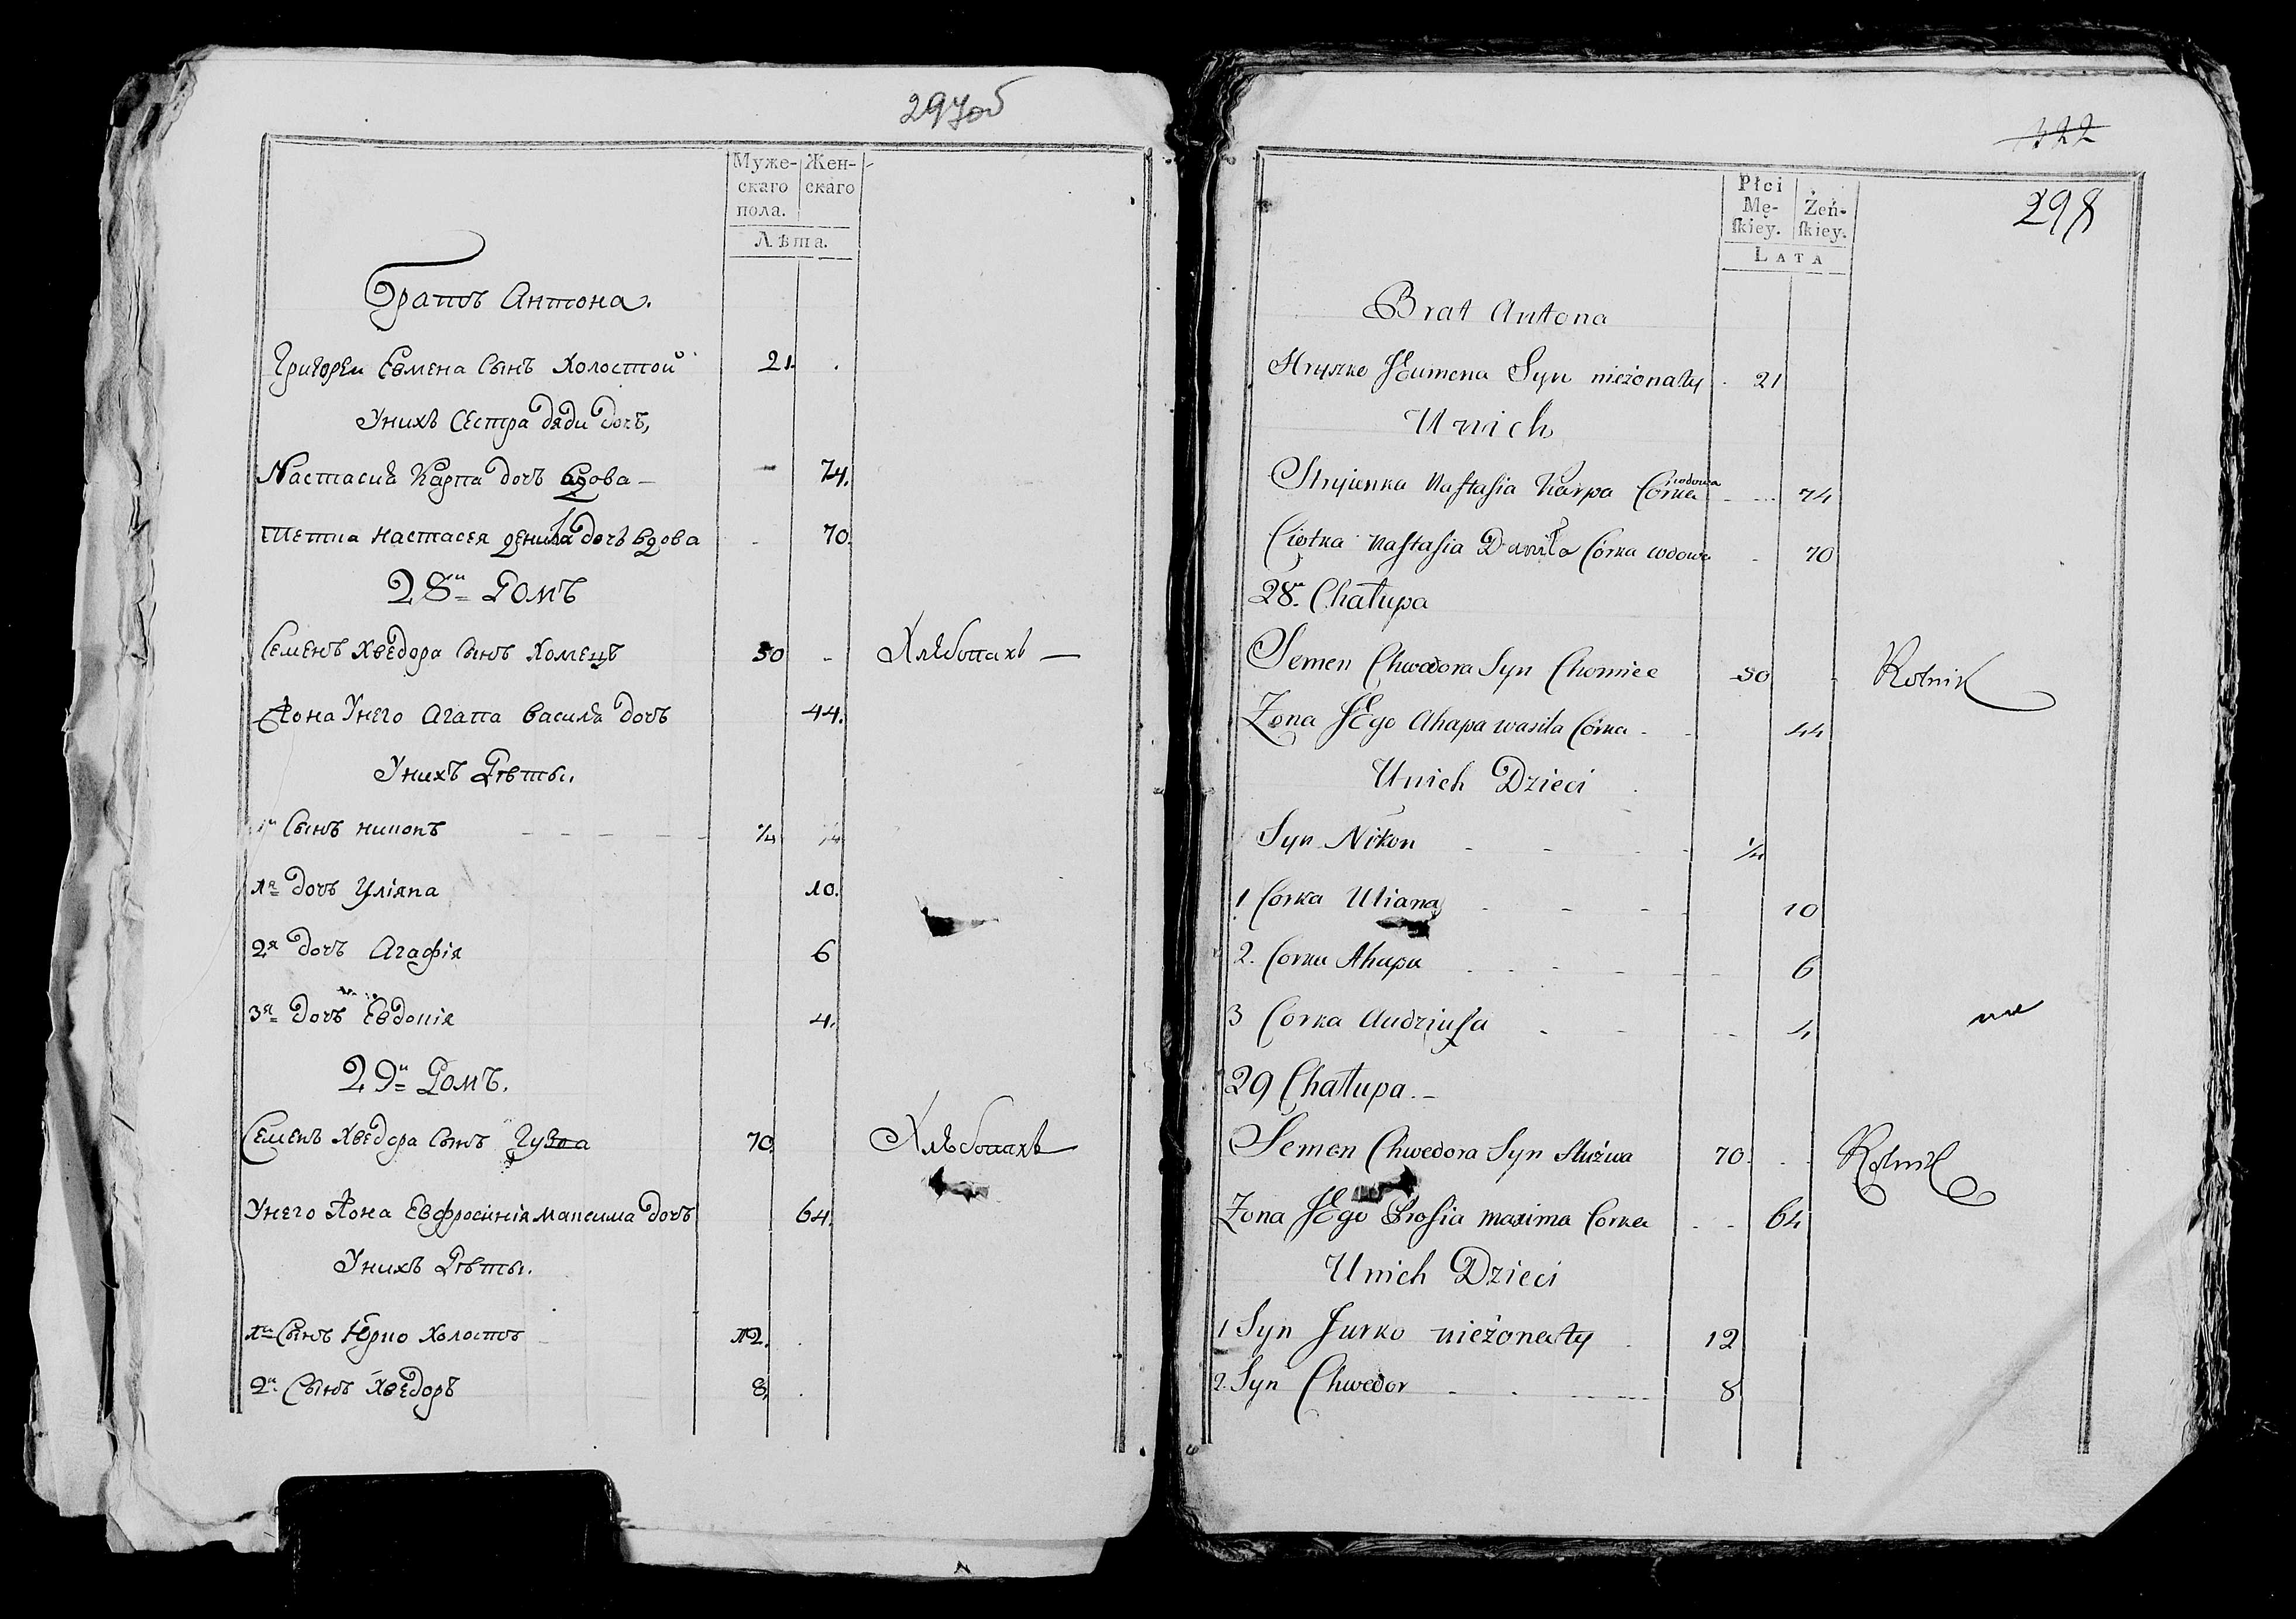 297об
Муже- Жен-
скаго скаго
пола.
Лѣта.
Братъ Антона.
Григорей Евмена Сынъ Холостой 21.
Унихъ Сестра дяди дочъ,
Настасия Карпа дочъ вдова – 74.
Тетка настасея данила дочъ вдова 70.
28й Домъ
Семенъ Хведора Сынъ Хомецъ 50 Хлѣбопахъ –
Жона Унего Агапа василя дочъ 44.
Унихъ Дѣты.
1й Сынъ никонъ 1/4
1я дочъ Уліяна 10.
2я дочъ Агафія 6
3я дочъ Евдокія 4.
29й Домъ.
Семенъ Хведора Сынъ 70. Хлѣбопахъ
Унего Жона Евфросинія максима дочъ 64.
Унихъ Дѣты.
1й Сынъ Юрко Холостъ 12.
2й Сынъ Хведоръ 8.
322
298
Płci
Mę- Żeń-
skiey. skiey.
LATA
Brat Antona
Hryszko JEumena Syn nieżonaty 21
Unich
Stryienka Nastasia Karpa Córka wdowa 74
Ciotka Nastasia Daniła Córka wdowa 70
28a Chałupa
Semen Chwedora Syn Chomiec 50 Rolnik
Zona JEgo Ahapa wasila Córka 44
Unich Dzieci
Syn Nikon 1/4
1 Corka Uliana 10
2. Corka Ahapa 6
3 Corka Audziusa 4
29 Chałupa. –
Semen Chwedora Syn 70. Rolnik
Zona JEgo Prosia maxima Corka 64
Unich Dzieci
1 Syn Jurko nieżonaty 12
2. Syn Chwedor 8